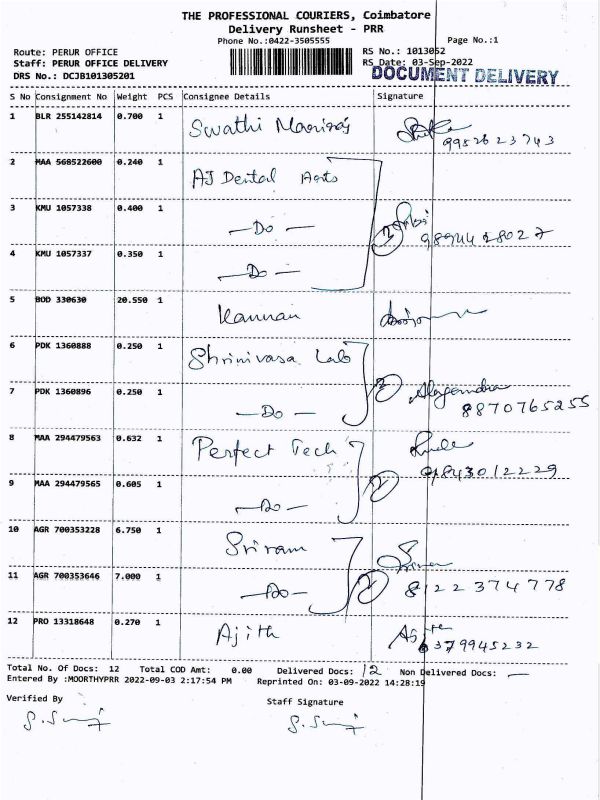 THE PROFESSIONAL COURIERS, Coimbatore
Delivery Runsheet - PRR
Phone No.:0422-3505555
Page No.:1
Route: PERUR OFFICE
RS No.: 1013052
Staff: PERUR OFFICE DELIVERY
RS Date: 03-Sep-2022
DRS No.: DCJB101305201
DOCUMENT DELIVERY
S No Consignment No Weight PCS Consignee Details Signature
1 BLR 255142814 0.700 1 Swathi
9952623743
2 MAA 568522600 0.240 1 AJ Dental Arts
3 KMU 1057338 0.400 1 —Do— 3
9894428027
4 KMU 1057337 0.350 1 —Do—
5 BOD 330630 20.550 1 Kannan
6 PDK 1360888 0.250 1 Shrinivasa Lab
7 PDK 1360896 0.250 1 —Do— 2
8870765255
8 MAA 294479563 0.632 1 Perfect Tech
9843012229
9 MAA 294479565 0.605 1 —Do— 2
10 AGR 700353228 6.750 1 Sriram
11 AGR 700353646 7.000 1 —Do— 2 8122374778
12 PRO 13318648 0.270 1 Ajith
6379945232
Total No. Of Docs: 12 Total COD Amt: 0.00 Delivered Docs: 12 Non Delivered Docs: —
Entered By :MOORTHYPRR 2022-09-03 2:17:54 PM Reprinted On: 03-09-2022 14:28:19
Verified By Staff Signature